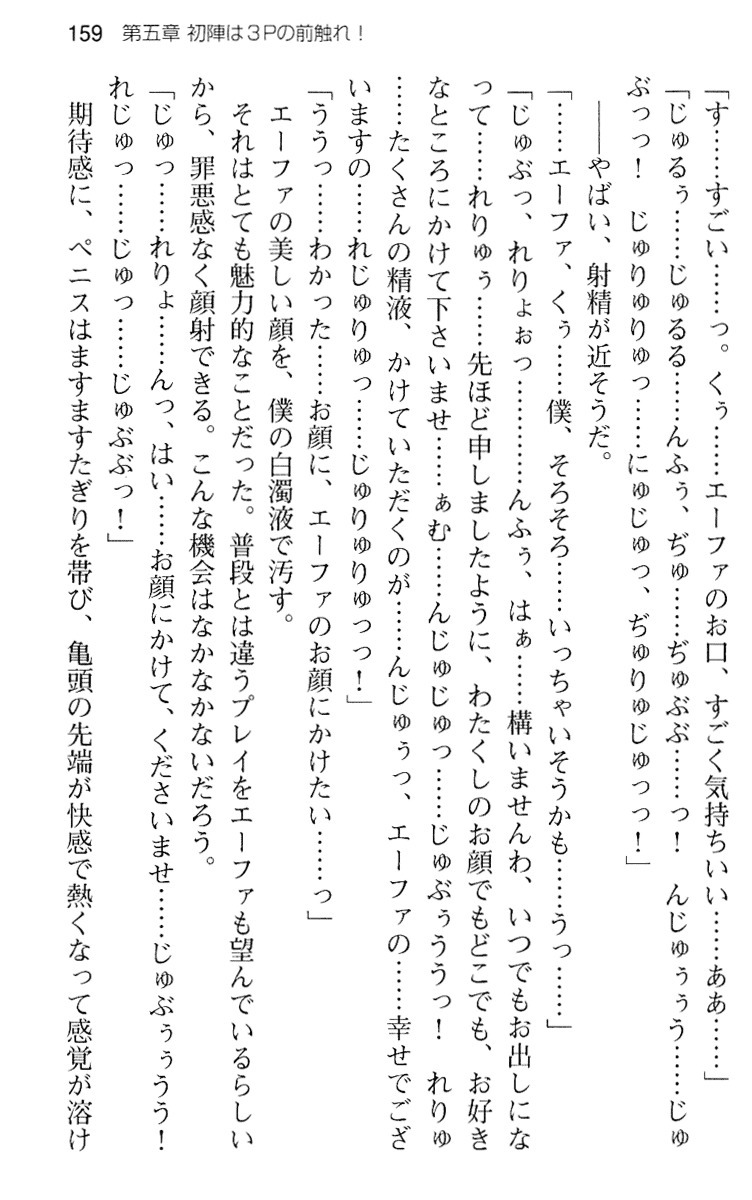 159 第五章 初陣は３Ｐの前触れ！
「す……すごい……っ。くぅ……エーファのお口、すごく気持ちいい……ああ……」
「じゅるぅ……じゅるる……んふぅ、ぢゅ……ぢゅぶぶ……っ！　んじゅぅぅう……じゅ
ぶっっ！　じゅりゅりゅっ……にゅじゅっ、ぢゅりゅじゅっっ！」
――やばい、射精が近そうだ。
「……エーファ、くぅ……僕、そろそろ……いっちゃいそうかも……うっ……」
「じゅぶっ、れりょぉっ…………んふぅ、はぁ……構いませんわ、いつでもお出しにな
って……れりゅぅ……先ほど申しましたように、わたくしのお顔でもどこでも、お好き
なところにかけて下さいませ……ぁむ……んじゅじゅっ……じゅぶぅううっ！　れりゅ
……たくさんの精液、かけていただくのが……んじゅぅっ、エーファの……幸せでござ
いますの……れじゅりゅっ……じゅりゅりゅっっ！」
「ううっ……わかった……お顔に、エーファのお顔にかけたい……っ」
エーファの美しい顔を、僕の白濁液で汚す。
それはとても魅力的なことだった。普段とは違うプレイをエーファも望んでいるらしい
から、罪悪感なく顔射できる。こんな機会はなかなかないだろう。
「じゅっ……れりょ……んっ、はい……お顔にかけて、くださいませ……じゅぶぅぅうう！
れじゅっ……じゅっ……じゅぶぶっ！」
期待感に、ペニスはますますたぎりを帯び、亀頭の先端が快感で熱くなって感覚が溶け